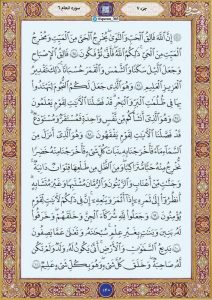 جزء ٧
سورة الأنعام ٦
۞ إِنَّ ٱللَّهَ فَالِقُ ٱلْحَبِّ وَٱلنَّوَىٰ يُخْرِجُ ٱلْحَيَّ مِنَ ٱلْمَيِّتِ وَمُخْرِجُ
ٱلْمَيِّتِ مِنَ ٱلْحَيِّ ذَٰلِكُمُ ٱللَّهُ فَأَنَّىٰ تُؤْفَكُونَ ٩٥ فَالِقُ ٱلْإِصْبَاحِ
وَجَعَلَ ٱلَّيْلَ سَكَنًا وَٱلشَّمْسَ وَٱلْقَمَرَ حُسْبَانًا ذَٰلِكَ تَقْدِيرُ
ٱلْعَزِيزِ ٱلْعَلِيمِ ٩٦ وَهُوَ ٱلَّذِى جَعَلَ لَكُمُ ٱلنُّجُومَ لِتَهْتَدُوا۟
بِهَا فِى ظُلُمَٰتِ ٱلْبَرِّ وَٱلْبَحْرِ قَدْ فَصَّلْنَا ٱلْءَايَٰتِ لِقَوْمٍ يَعْلَمُونَ
٩٧ وَهُوَ ٱلَّذِىٓ أَنشَأَكُم مِّن نَّفْسٍ وَٰحِدَةٍ فَمُسْتَقَرٌّ وَمُسْتَوْدَعٌ
قَدْ فَصَّلْنَا ٱلْءَايَٰتِ لِقَوْمٍ يَفْقَهُونَ ٩٨ وَهُوَ ٱلَّذِىٓ أَنزَلَ مِنَ
ٱلسَّمَآءِ مَآءً فَأَخْرَجْنَا بِهِۦ نَبَاتَ كُلِّ شَىْءٍ فَأَخْرَجْنَا مِنْهُ خَضِرًا
نُّخْرِجُ مِنْهُ حَبًّا مُّتَرَاكِبًا وَمِنَ ٱلنَّخْلِ مِن طَلْعِهَا قِنْوَانٌ دَانِيَةٌ
وَجَنَّٰتٍ مِّنْ أَعْنَابٍ وَٱلزَّيْتُونَ وَٱلرُّمَّانَ مُشْتَبِهًا وَغَيْرَ مُتَشَٰبِهٍ
ٱنظُرُوٓا۟ إِلَىٰ ثَمَرِهِۦٓ إِذَآ أَثْمَرَ وَيَنْعِهِۦٓ إِنَّ فِى ذَٰلِكُمْ لَءَايَٰتٍ لِّقَوْمٍ
يُؤْمِنُونَ ٩٩ وَجَعَلُوا۟ لِلَّهِ شُرَكَآءَ ٱلْجِنَّ وَخَلَقَهُمْ وَخَرَقُوا۟
لَهُۥ بَنِينَ وَبَنَٰتٍۭ بِغَيْرِ عِلْمٍ سُبْحَٰنَهُۥ وَتَعَٰلَىٰ عَمَّا يَصِفُونَ
١٠٠ بَدِيعُ ٱلسَّمَٰوَٰتِ وَٱلْأَرْضِ أَنَّىٰ يَكُونُ لَهُۥ وَلَدٌ وَلَمْ تَكُن
لَّهُۥ صَٰحِبَةٌ وَخَلَقَ كُلَّ شَىْءٍ وَهُوَ بِكُلِّ شَىْءٍ عَلِيمٌ ١٠١
١٤٠